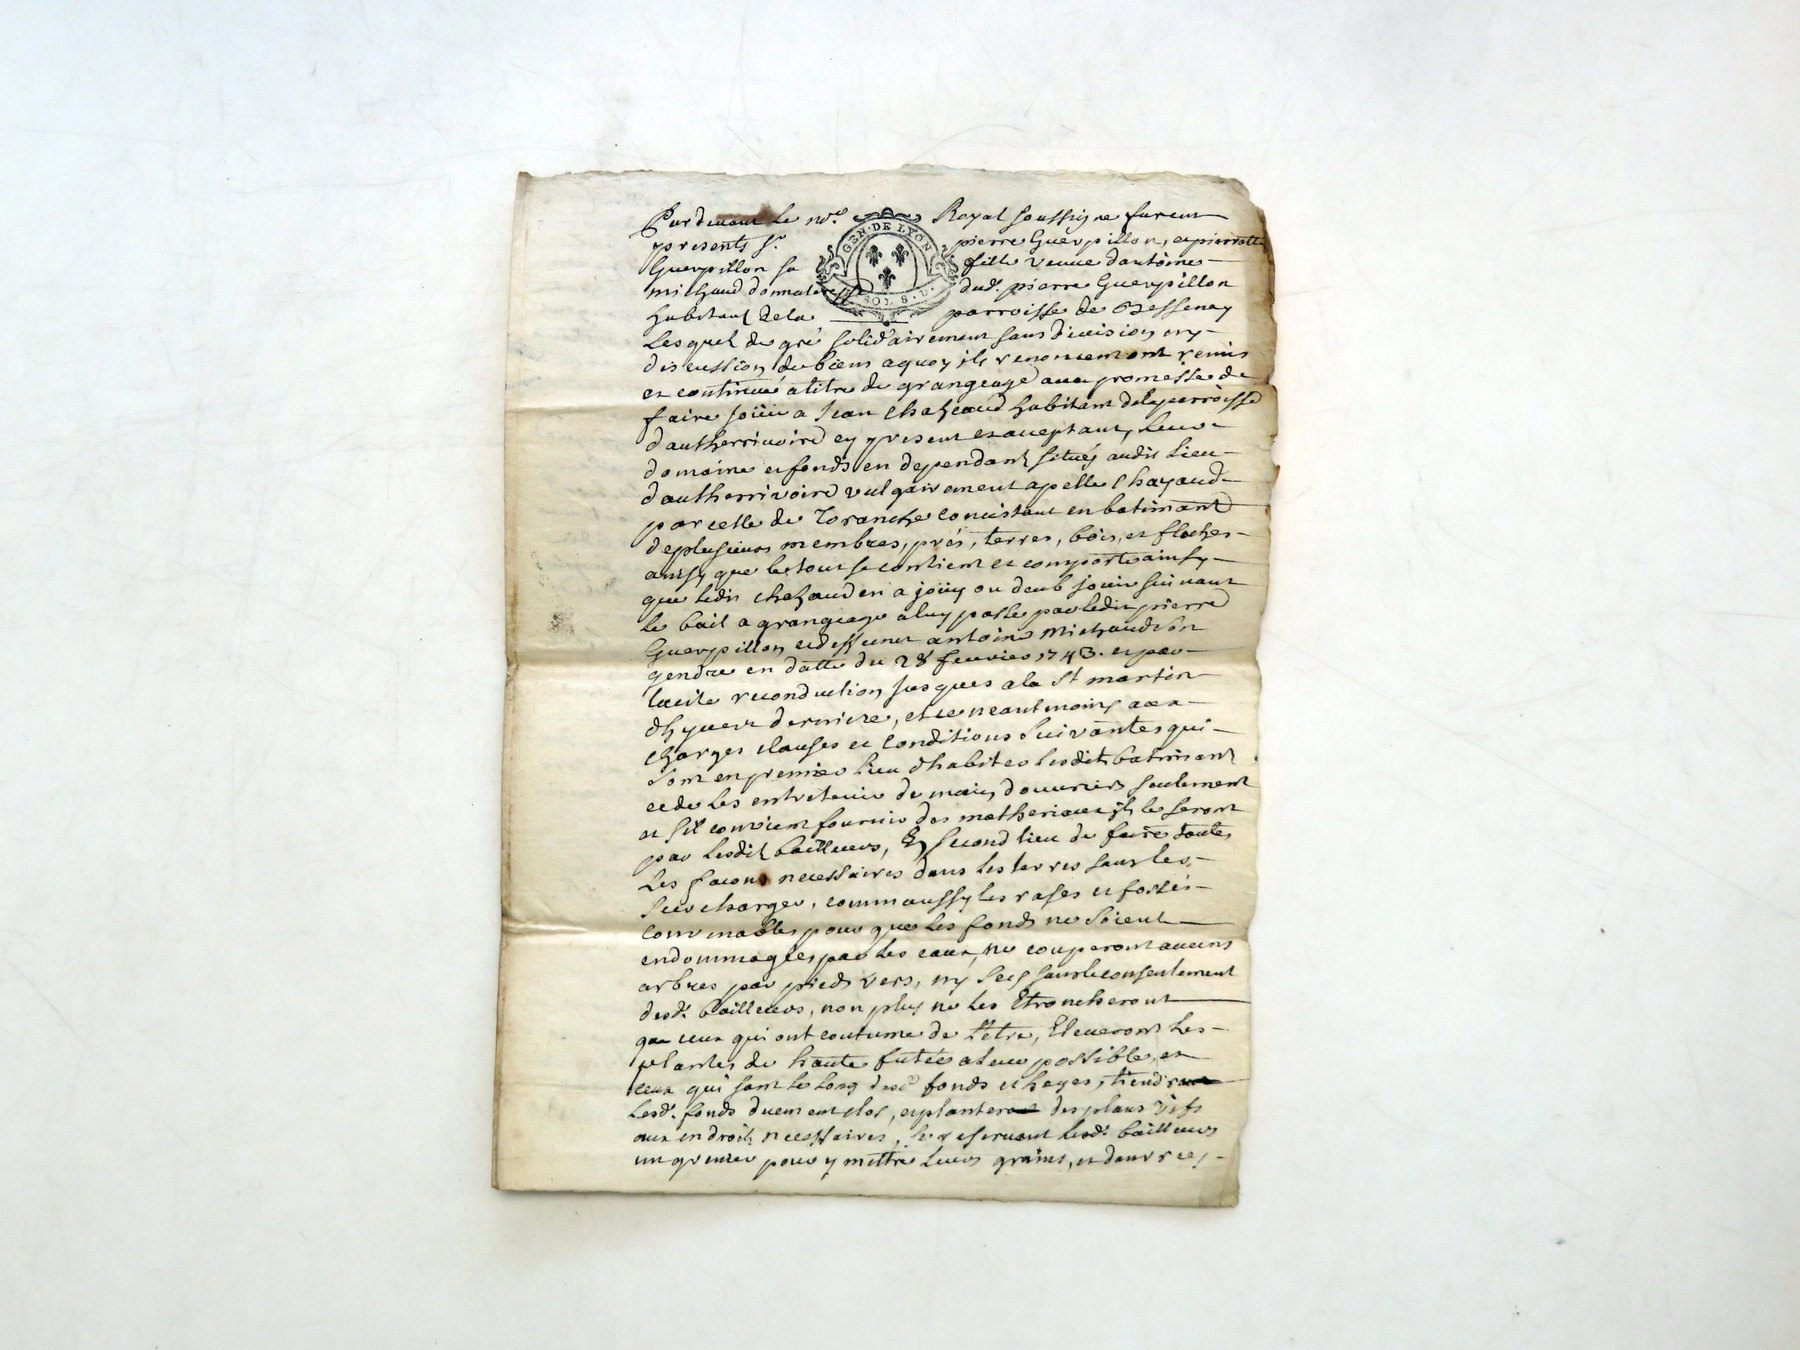 Pardevant Le no.re Royal soussigne furent
presents Sr. pierre Guerpillon, et pierrette
Guerpillon sa fille veuve dantoine
michaud donnataire dud. pierre Guerpillon
GEN·DE LYON
SOL S.
habitant de la parroisse de Bessenay
Lesquels de gré solidairement sans division ny
discussion de biens aquoy ils renoncem ont remis
et continué atitre de grangeage avec promesse de
faire joüir a Jean Chazaud habitant de la parroisse
dautherrivoire cy present et acceptant, leur
domaine et fonds en dependant situés audit Lieu
dautherrivoire vulgairement apellé Chazaud
parcelle de Toranche concistant en batimant
de plusieurs membres, prés, terres, bois, et flaches
ainsy que le tout se contient et comporte ainsy
que ledit chazaud en a joüy ou deub joüir suivant
le bail a grangeage a luy passé par ledit pierre
Guerpillon et deffunt antoine michaud son
gendre en datte du 28 fevrier 1743. et par
tacite reconduction jusques a la St martin
dhyver derniere, et ce neantmoins aux
charges clauses et Conditions suivantes qui
sont en premier lieu dhabiter lesdits batimant
et de les entretenir de main douvriers seulement
et sil convient fournir des matheriaux ils le seront
par lesdits bailleurs, En second lieu de faire toutes
Les façons necessaires dans les terres sans les
surcharger, comm aussy les rases et fossés
convenables pour que les fonds ne soient
endommagées par les eaux, ne couperont aucuns
arbres par pieds vers, ny secs sans le consentement
desd. bailleurs, non plus ne les Etroncheront
que ceux qui ont coutume de L'etre, Eleveront les
plantes de haute futée a leur possible, et
ceux qui sont le long desd. fonds et hayes, tiendront
Lesd. fonds duement clos, et planteront des plans vifs
aux endroits necessaires, se reservant lesd. bailleurs
un grenier pour y mettre leurs grains, et dans